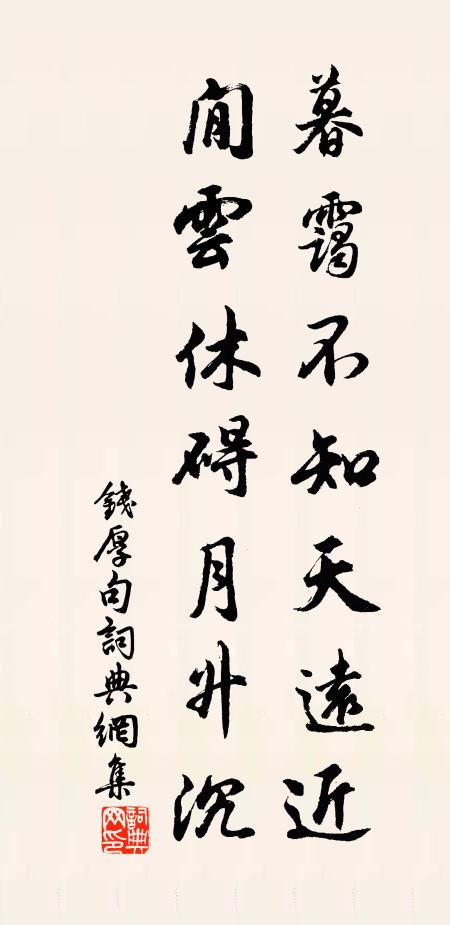 暮靄不知天遠近
閒雲休碍月升沉
錢厚句詞典網集
詞典網印